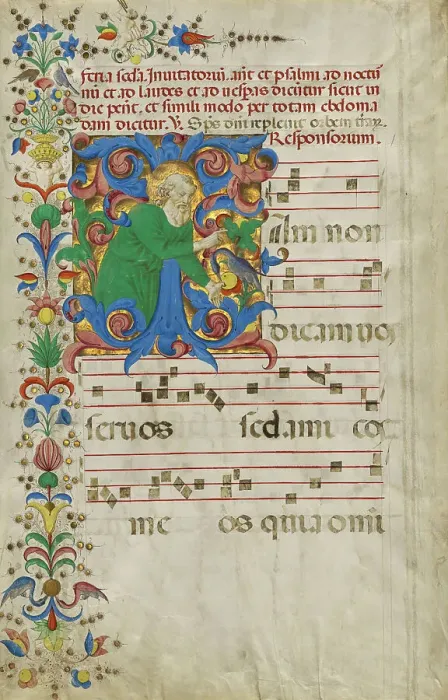 feria scda. Inuitatoriu. ant et psalmi ad noctu
nu et ad laudes et ad uespas dicitur sicut in
die pent. et simili modo per totam ebdoma
dam dicitur. V. Sps dni repleuit orbem
Responsorium.
Iam non
dicam uos
seruos sed ami cos
me os quia omi